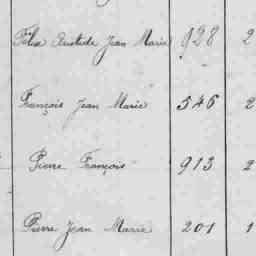 Félix Aristide Jean Marie 928 2
François Jean Marie 546 2
Pierre François 913 2
Pierre Jean Marie 201 1